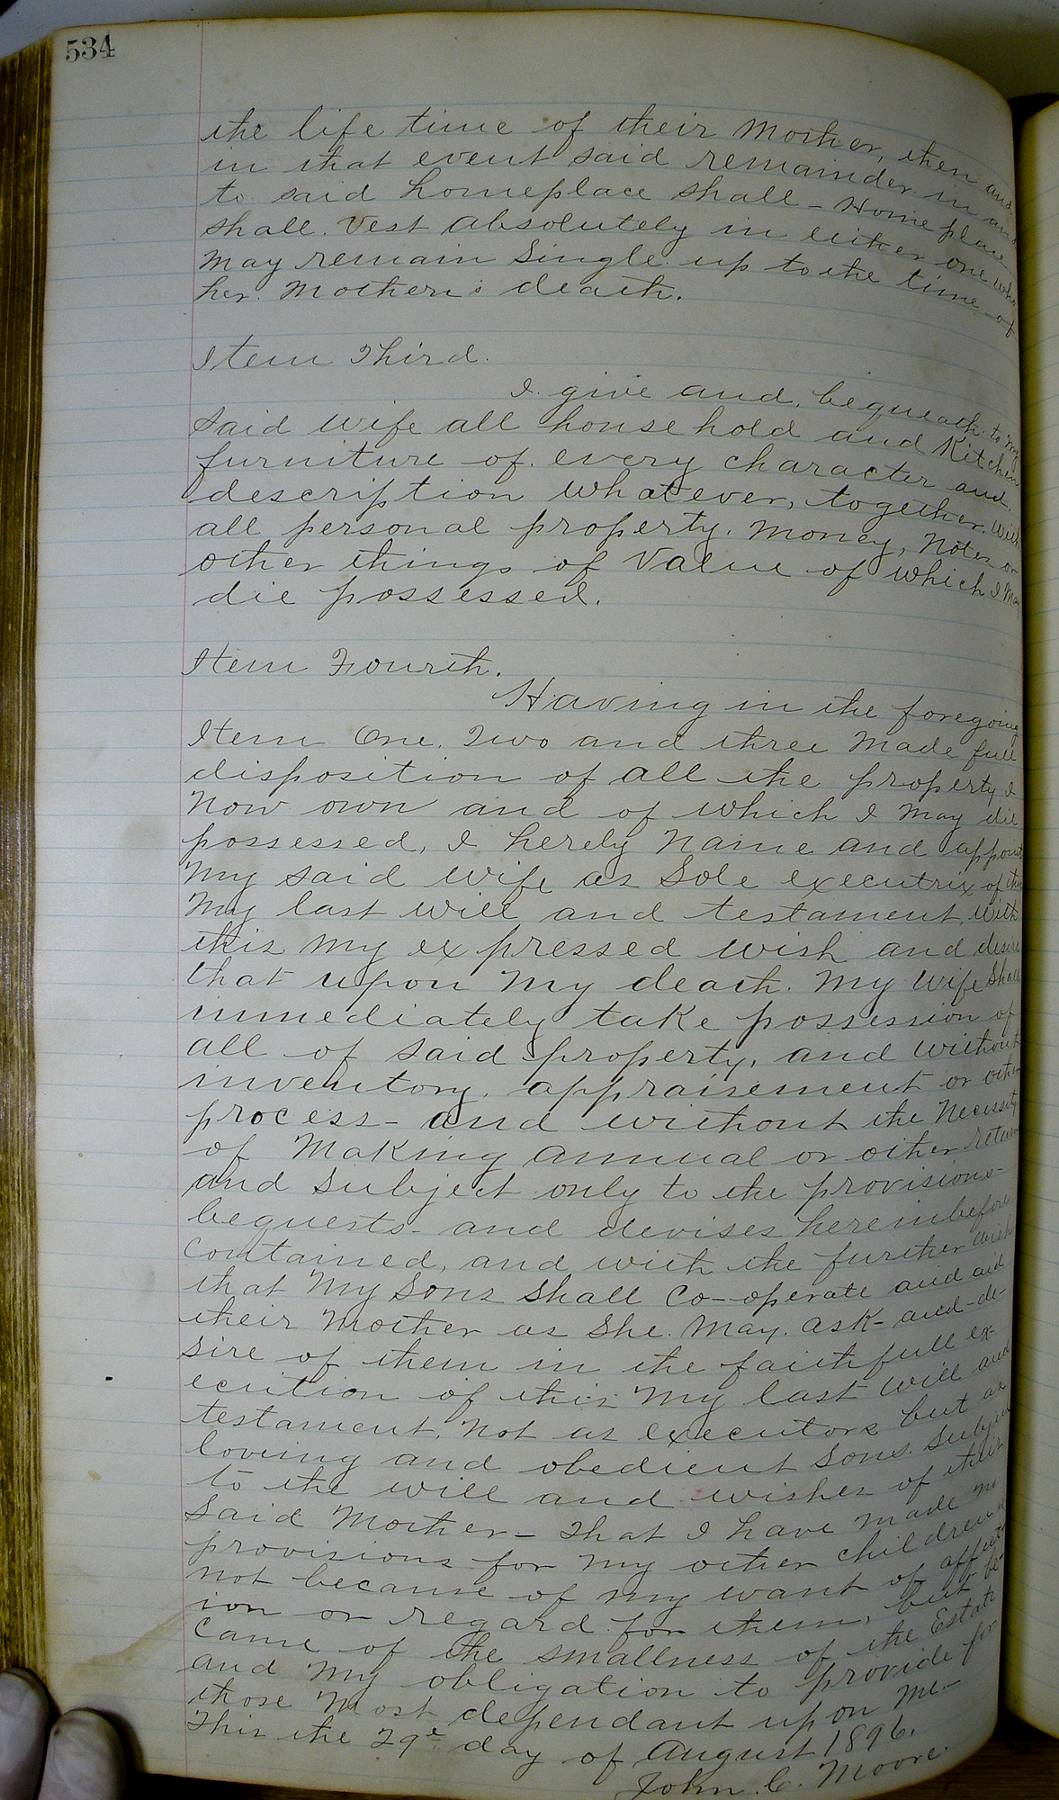 534
the life time of their Mother, then and
in that event said remainder in and
to said homeplace shall - Home place
shall. Vest absolutely in either one who
may remain Single up to the time of
her. Mother's death.
Item Third.
I. give and, bequeath to my
Said Wife all household and Kitchen
furniture of. every character and
description whatever, together. with
all personal property. Money, Notes or
other things of Value of which I may
die possessed.
Item Fourth.
Having in the foregoing
Item One. Two and three Made full
disposition of all the property I
Now own and of which I May die
possessed, I herely Name and appoint
My said wife as Sole executrix of this
My last will and testament, with
this my expressed wish and desire
that upon my death. My Wife Shall
immediately take possession of
all of said property, and without
inventory, appraisement or other
process - and without the Necessity
of Making annual or other return
and Subject only to the provisions -
bequests - and devises hereinbefore
contained, and with the further wish
that My Sons shall Co-operate and aid
their Mother as She. May. ask - and - de-
sire of them in the faithfull ex-
ecution of this My last will and
testament. Not as executors but as
loving and obedient Sons. Subject
to the will and wishes of their
Said Mother - That I have made no
provisions for my other children is
not because of my want of affect-
ion or regard for them, but be-
came of the smallness of the Estate
and my obligation to provide for
those Most dependant upon Me -
This the 29e day of August 1896.
John. C. Moore.